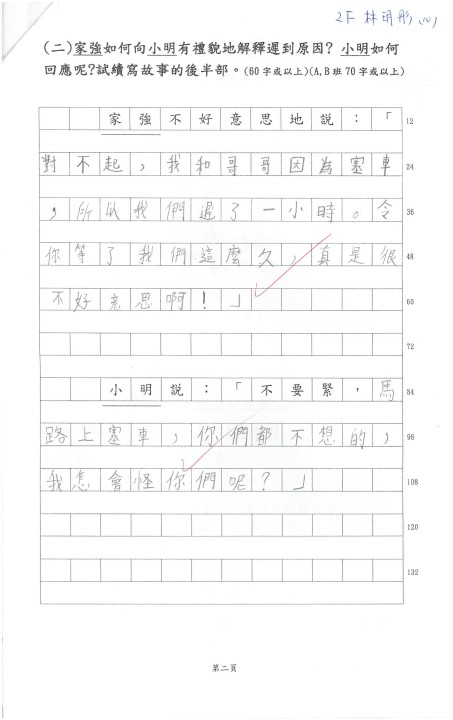 2F 林玥彤 (10)
(二)家強如何向小明有禮貌地解釋遲到原因? 小明如何
回應呢?試續寫故事的後半部。(60字或以上)(A,B班70字或以上)
家強不好意思地說：「 12
對不起，我和哥哥因為塞車 24
，所以我們遲了一小時。令 36
你等了我們這麼久，真是很 48
不好意思啊！」 60
72
小明說：「不要緊，馬 84
路上塞車，你們都不想的， 96
我怎會怪你們呢？」 108
120
132
第二頁